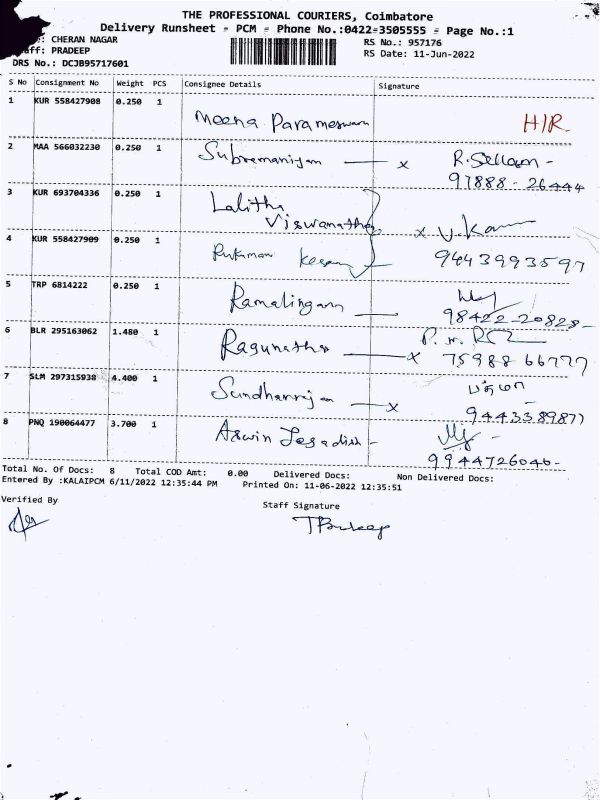 THE PROFESSIONAL COURIERS, Coimbatore
Delivery Runsheet - PCM - Phone No.:0422-3505555 - Page No.:1
: CHERAN NAGAR
RS No.: 957176
aff: PRADEEP
RS Date: 11-Jun-2022
DRS No.: DCJB95717601
S No Consignment No Weight PCS Consignee Details Signature
1 KUR 558427908 0.250 1 Meena Parameswaran H/R
2 MAA 566032230 0.250 1 Subramaniyam x R. Sellam -
97888-26444
3 KUR 693704336 0.250 1 Lalitha
Viswanathan x V.
4 KUR 558427909 0.250 1 9443993597
5 TRP 6814222 0.250 1 Ramalingam
98422-20828-
6 BLR 295163062 1.480 1 Ragunathan x 75988 66777
7 SLM 297315938 4.400 1 Sundharrajan x பத்மா
9443389877
8 PNQ 190064477 3.700 1 Aswin Jegadish -
9944726046-
Total No. Of Docs: 8 Total COD Amt: 0.00 Delivered Docs: Non Delivered Docs:
Entered By :KALAIPCM 6/11/2022 12:35:44 PM Printed On: 11-06-2022 12:35:51
Verified By
Staff Signature